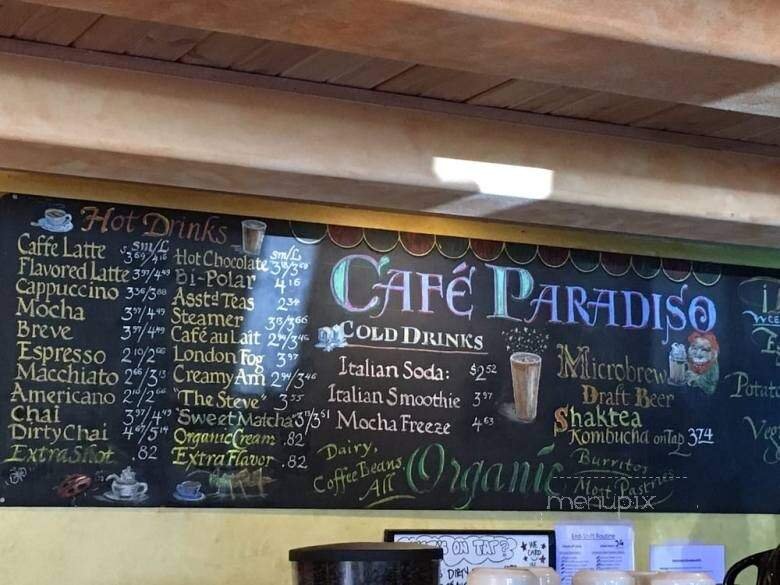 Hot Drinks
$ sm/L
Caffe Latte 3 69/4 16
Flavored Latte 3 97/4 49
Cappuccino 3 36/3 88
Mocha 3 97/4 49
Breve 3 97/4 49
Espresso 2 10/2 66
Macchiato 2 66/3 13
Americano 2 10/2 66
Chai 3 97/4 49
Dirty Chai 4 67/5 19
Extra Shot .82
sm/L
Hot Chocolate
Bi-Polar 4 16
Asstd Teas 2 34
Steamer
Café au Lait 2 94/3 46
London Fog 3 97
Creamy Am 2 94/3 46
"The Steve" 3 55
"Sweet Matcha"
Organic Cream .82
Extra Flavor .82
CAFÉ PARADISO
COLD DRINKS
Italian Soda: $2 52
Italian Smoothie 3 97
Mocha Freeze 4 63
Dairy,
Coffee Beans,
All
Organic
Microbrew
Draft Beer
Shaktea
Kombucha on Tap 3.74
Burritos
Most Pastries
menupix
ON TAP?
WE
CARD
End Shift Routine